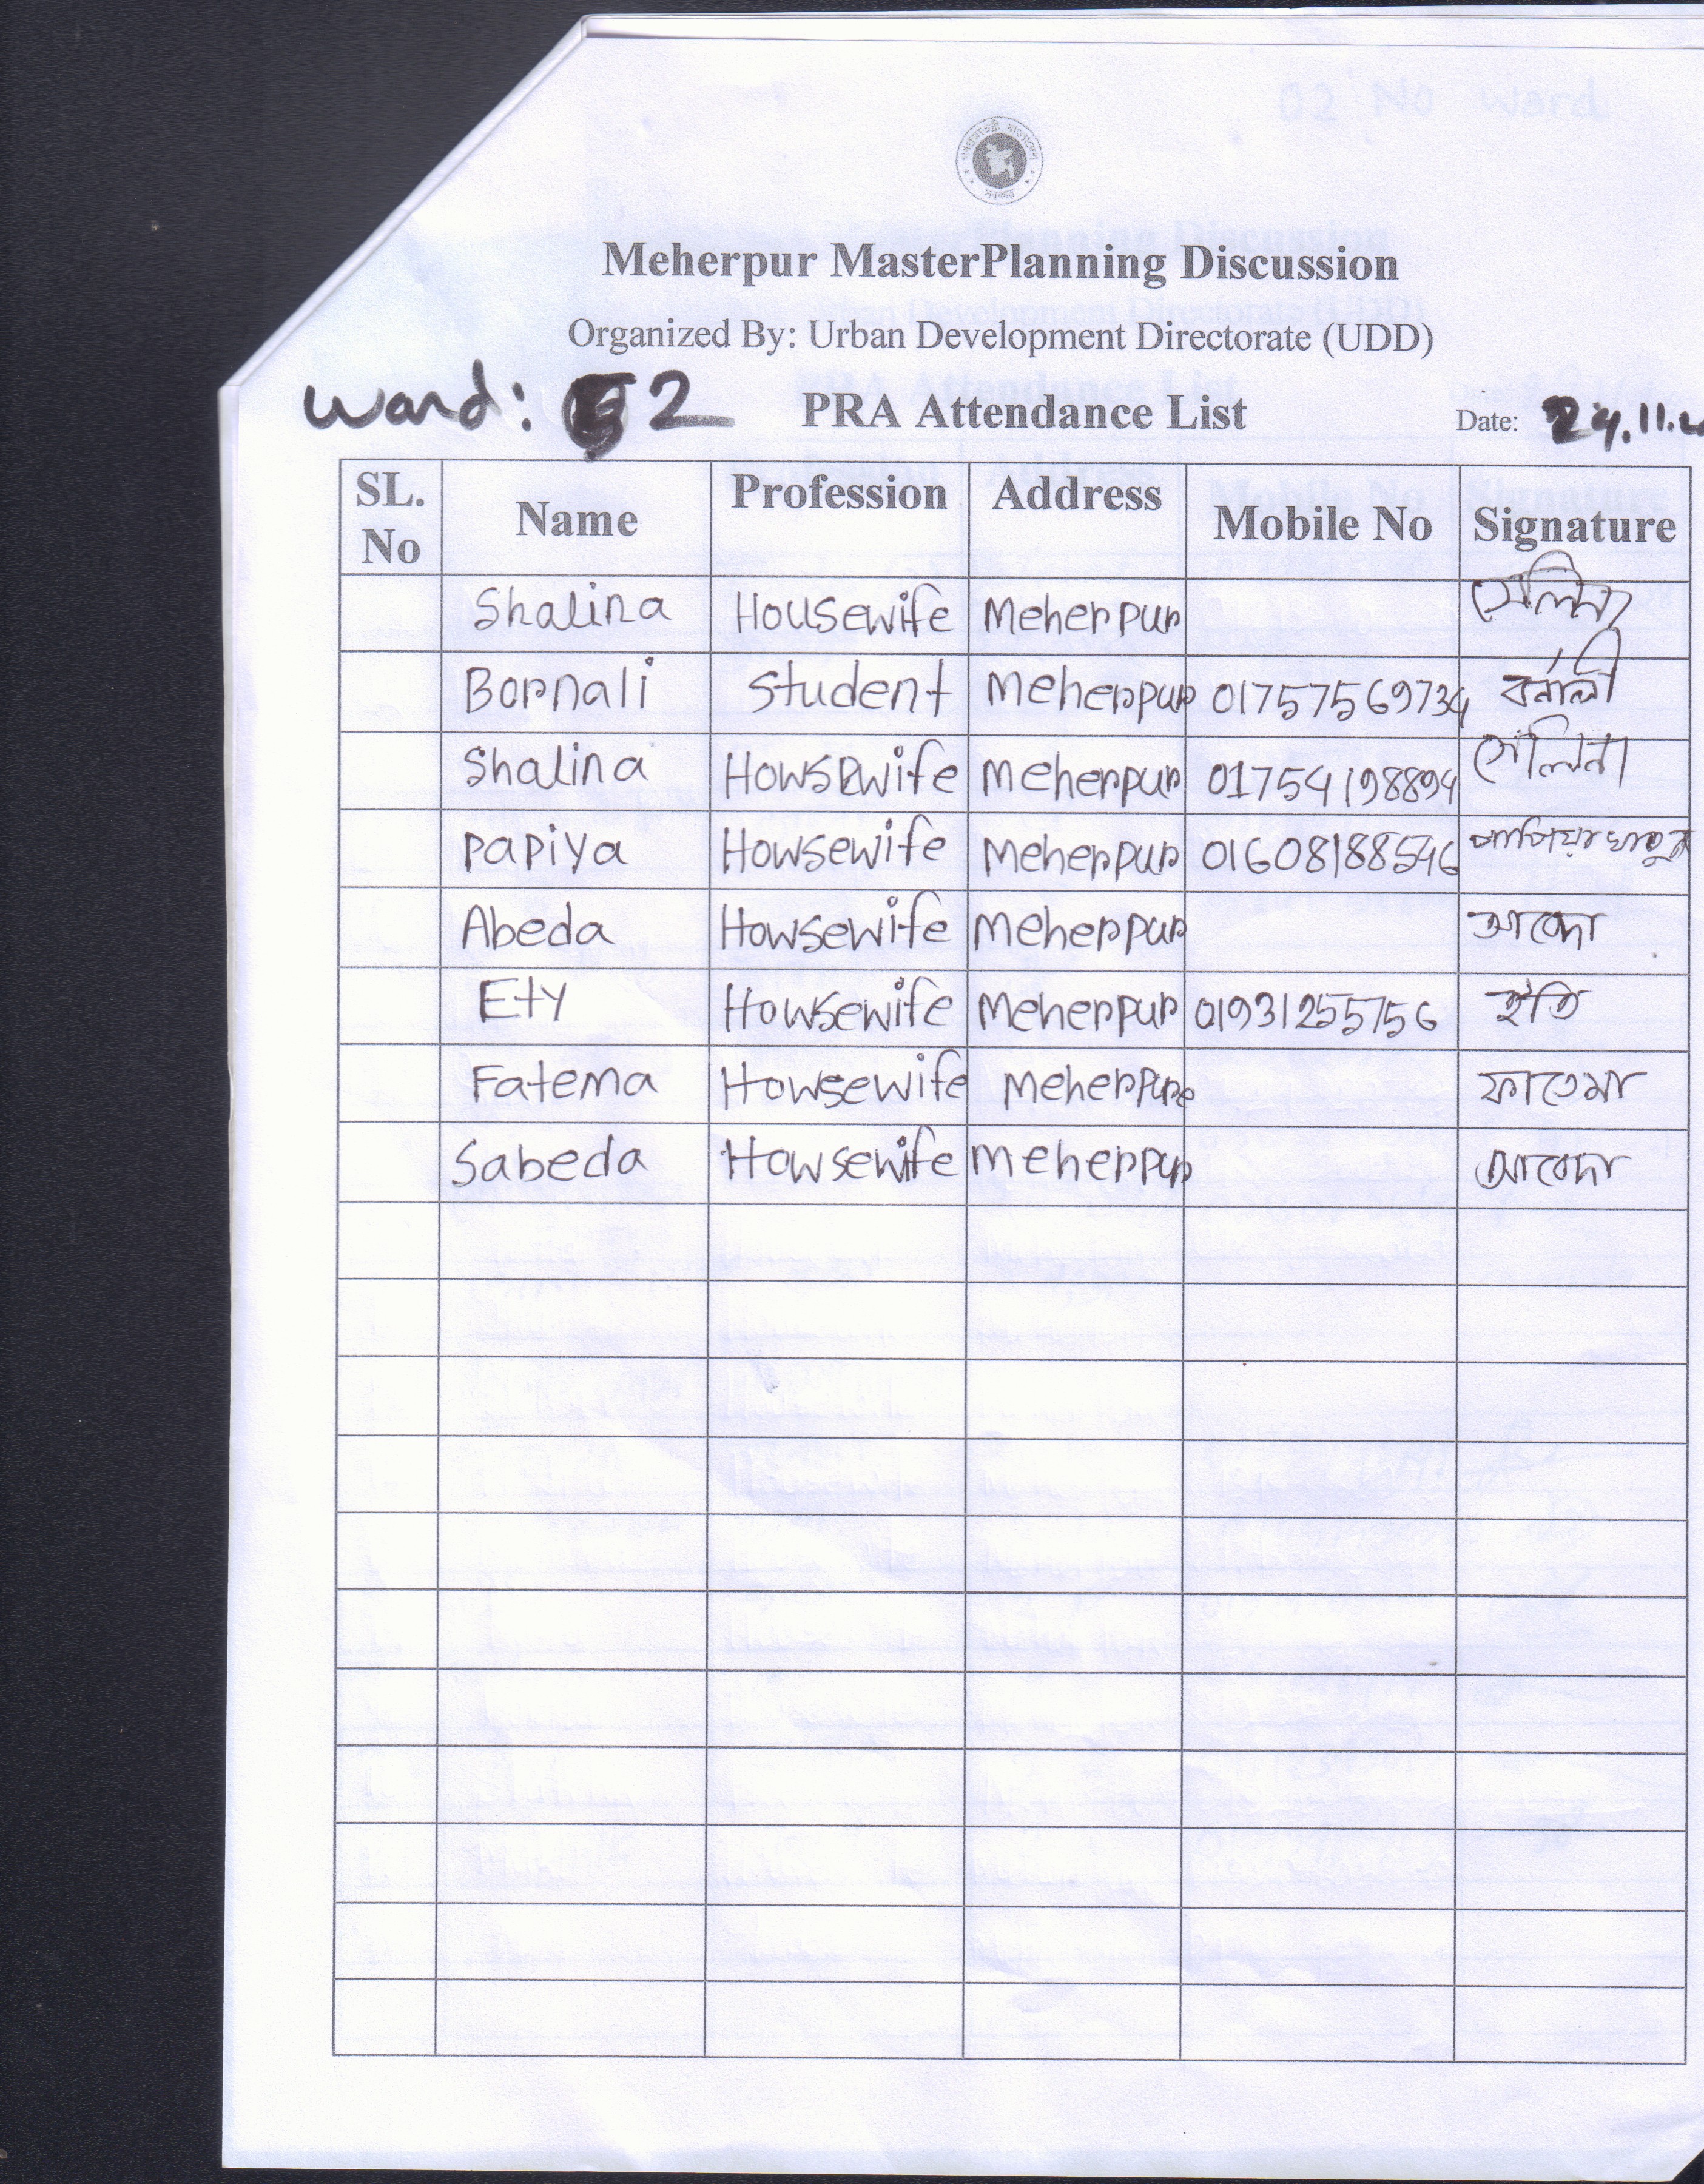 Meherpur MasterPlanning Discussion
Organized By: Urban Development Directorate (UDD)
Ward: 2 PRA Attendance List Date: 24.11.
SL. No Name Profession Address Mobile No Signature
Shalina Housewife Meherpur সেলিনা
Bornali Student Meherpur 01757569734 বর্নালী
Shalina Howsewife Meherpur 01754198894 সেলিনা
Papiya Howsewife Meherpur 01608188546 পাপিয়া খাতুন
Abeda Howsewife Meherpur আবেদা
Ety Howsewife Meherpur 01931255756 ইতি
Fatema Howsewife Meherpure ফাতেমা
Sabeda Howsewife Meherpur